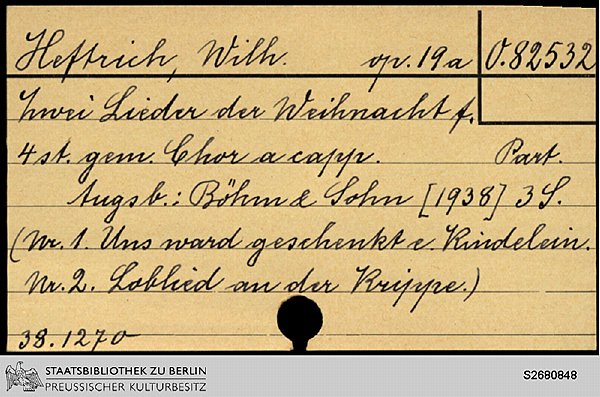 Heftrich, Wilh. op. 19a O. 82532
Zwei Lieder der Weihnacht f.
4st. gem. Chor a capp. Part.
Augsb.: Böhm & Sohn [1938] 3 S.
(Nr. 1. Uns ward geschenkt e. Kindelein.
Nr. 2. Loblied an der Krippe.)
38.1270
STAATSBIBLIOTHEK ZU BERLIN
PREUSSISCHER KULTURBESITZ
S2680848